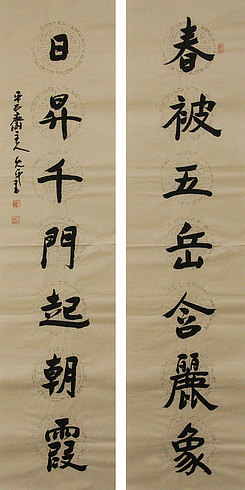 春被五岳含麗象
日昇千門起朝霞